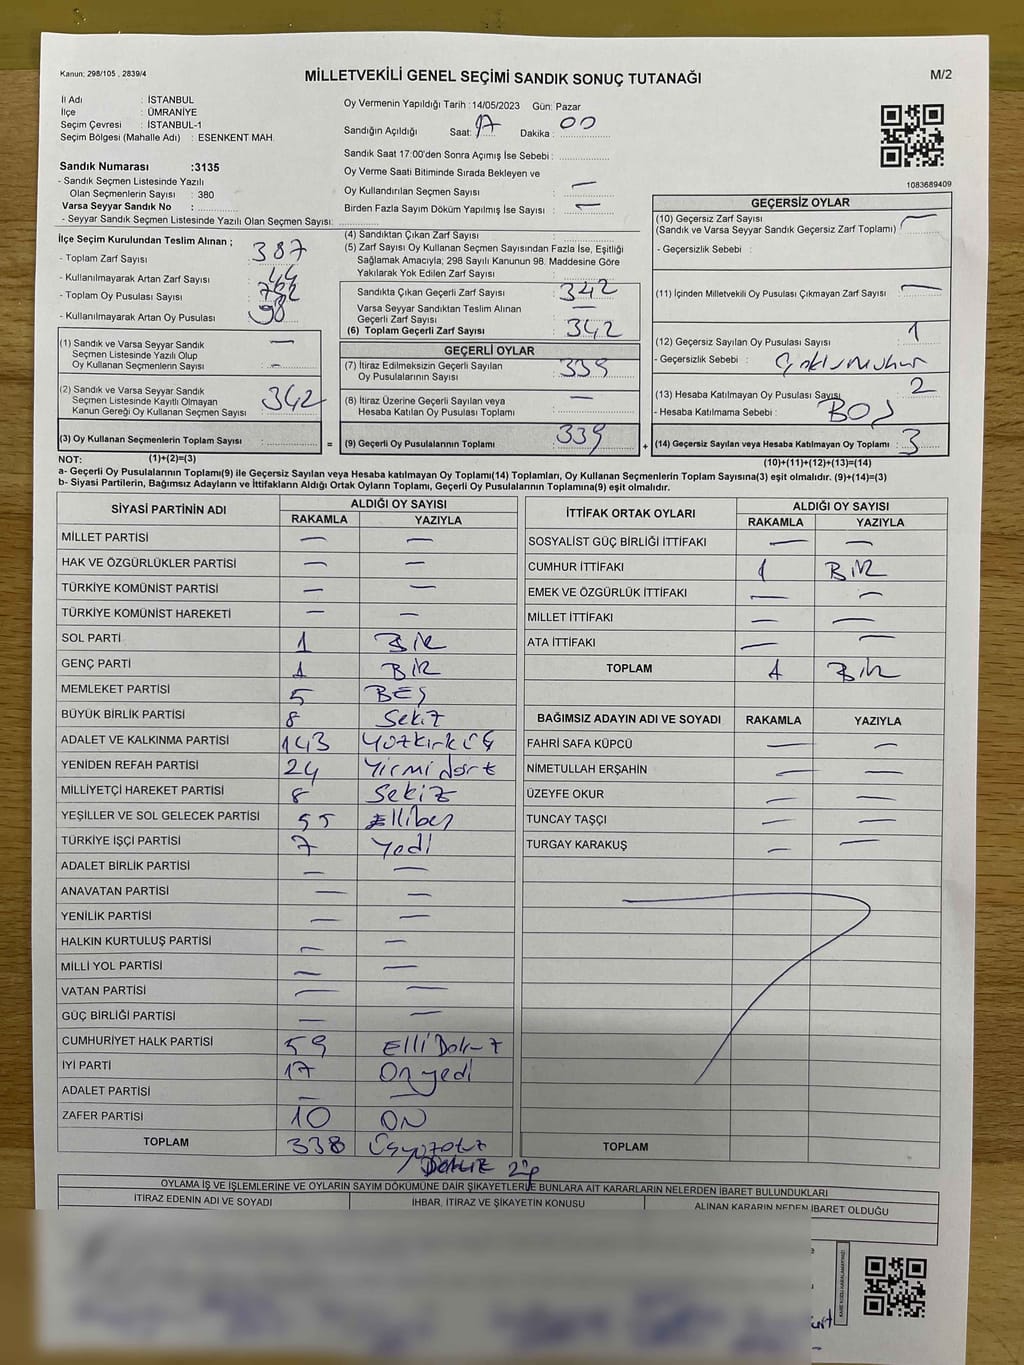 Kanun; 298/105 , 2839/4
MİLLETVEKİLİ GENEL SEÇİMİ SANDIK SONUÇ TUTANAĞI
M/2
İl Adı : İSTANBUL
İlçe : ÜMRANİYE
Seçim Çevresi : İSTANBUL-1
Seçim Bölgesi (Mahalle Adı) : ESENKENT MAH.
Sandık Numarası :3135
- Sandık Seçmen Listesinde Yazılı
Olan Seçmenlerin Sayısı : 380
Varsa Seyyar Sandık No :
- Seyyar Sandık Seçmen Listesinde Yazılı Olan Seçmen Sayısı:
Oy Vermenin Yapıldığı Tarih :14/05/2023 Gün: Pazar
Sandığın Açıldığı Saat: 17 Dakika : 00
Sandık Saat 17:00'den Sonra Açımış İse Sebebi :
Oy Verme Saati Bitiminde Sırada Bekleyen ve
Oy Kullandırılan Seçmen Sayısı : —
Birden Fazla Sayım Döküm Yapılmış İse Sayısı : —
1083689409
İlçe Seçim Kurulundan Teslim Alınan ;
- Toplam Zarf Sayısı : 387
- Kullanılmayarak Artan Zarf Sayısı : 44
- Toplam Oy Pusulası Sayısı :
- Kullanılmayarak Artan Oy Pusulası : 98
(1) Sandık ve Varsa Seyyar Sandık
Seçmen Listesinde Yazılı Olup
Oy Kullanan Seçmenlerin Sayısı : —
(2) Sandık ve Varsa Seyyar Sandık
Seçmen Listesinde Kayıtlı Olmayan
Kanun Gereği Oy Kullanan Seçmen Sayısı : 342
(3) Oy Kullanan Seçmenlerin Toplam Sayısı : =
(4) Sandıktan Çıkan Zarf Sayısı :
(5) Zarf Sayısı Oy Kullanan Seçmen Sayısından Fazla İse, Eşitliği
Sağlamak Amacıyla; 298 Sayılı Kanunun 98. Maddesine Göre
Yakılarak Yok Edilen Zarf Sayısı :
Sandıkta Çıkan Geçerli Zarf Sayısı : 342
Varsa Seyyar Sandıktan Teslim Alınan
Geçerli Zarf Sayısı : —
(6) Toplam Geçerli Zarf Sayısı : 342
GEÇERLİ OYLAR
(7) İtiraz Edilmeksizin Geçerli Sayılan
Oy Pusulalarının Sayısı : 339
(8) İtiraz Üzerine Geçerli Sayılan veya
Hesaba Katılan Oy Pusulası Toplamı : —
(9) Geçerli Oy Pusulalarının Toplamı : 339 +
GEÇERSİZ OYLAR
(10) Geçersiz Zarf Sayısı : —
(Sandık ve Varsa Seyyar Sandık Geçersiz Zarf Toplamı)
- Geçersizlik Sebebi :
(11) İçinden Milletvekili Oy Pusulası Çıkmayan Zarf Sayısı : —
(12) Geçersiz Sayılan Oy Pusulası Sayısı : 1
- Geçersizlik Sebebi :
(13) Hesaba Katılmayan Oy Pusulası Sayısı : 2
- Hesaba Katılmama Sebebi : BOŞ
(14) Geçersiz Sayılan veya Hesaba Katılmayan Oy Toplamı : 3
NOT: (1)+(2)=(3)
(10)+(11)+(12)+(13)=(14)
a- Geçerli Oy Pusulalarının Toplamı(9) ile Geçersiz Sayılan veya Hesaba katılmayan Oy Toplamı(14) Toplamları, Oy Kullanan Seçmenlerin Toplam Sayısına(3) eşit olmalıdır. (9)+(14)=(3)
b- Siyasi Partilerin, Bağımsız Adayların ve İttifakların Aldığı Ortak Oyların Toplamı, Geçerli Oy Pusulalarının Toplamına(9) eşit olmalıdır.
SİYASİ PARTİNİN ADI ALDIĞI OY SAYISI
RAKAMLA YAZIYLA
MİLLET PARTİSİ — —
HAK VE ÖZGÜRLÜKLER PARTİSİ — —
TÜRKİYE KOMÜNİST PARTİSİ — —
TÜRKİYE KOMÜNİST HAREKETİ — —
SOL PARTİ 1 BİR
GENÇ PARTİ 1 BİR
MEMLEKET PARTİSİ 5 BEŞ
BÜYÜK BİRLİK PARTİSİ 8 Sekiz
ADALET VE KALKINMA PARTİSİ 143 Yüzkırküç
YENİDEN REFAH PARTİSİ 24 Yirmi dört
MİLLİYETÇİ HAREKET PARTİSİ 8 Sekiz
YEŞİLLER VE SOL GELECEK PARTİSİ 55 Ellibeş
TÜRKİYE İŞÇİ PARTİSİ 7 Yedi
ADALET BİRLİK PARTİSİ — —
ANAVATAN PARTİSİ — —
YENİLİK PARTİSİ — —
HALKIN KURTULUŞ PARTİSİ — —
MİLLİ YOL PARTİSİ — —
VATAN PARTİSİ — —
GÜÇ BİRLİĞİ PARTİSİ — —
CUMHURİYET HALK PARTİSİ 59 Elli Dokuz
İYİ PARTİ 17 Onyedi
ADALET PARTİSİ — —
ZAFER PARTİSİ 10 ON
TOPLAM 338
İTTİFAK ORTAK OYLARI ALDIĞI OY SAYISI
RAKAMLA YAZIYLA
SOSYALİST GÜÇ BİRLİĞİ İTTİFAKI — —
CUMHUR İTTİFAKI 1 BİR
EMEK VE ÖZGÜRLÜK İTTİFAKI — —
MİLLET İTTİFAKI — —
ATA İTTİFAKI — —
TOPLAM 1 BİR
BAĞIMSIZ ADAYIN ADI VE SOYADI RAKAMLA YAZIYLA
FAHRİ SAFA KÜPCÜ — —
NİMETULLAH ERŞAHİN — —
ÜZEYFE OKUR — —
TUNCAY TAŞÇI — —
TURGAY KARAKUŞ — —
TOPLAM
OYLAMA İŞ VE İŞLEMLERİNE VE OYLARIN SAYIM DÖKÜMÜNE DAİR ŞİKAYETLERLE BUNLARA AİT KARARLARIN NELERDEN İBARET BULUNDUKLARI
İTİRAZ EDENİN ADI VE SOYADI İHBAR, İTİRAZ VE ŞİKAYETİN KONUSU ALINAN KARARIN NEDEN İBARET OLDUĞU